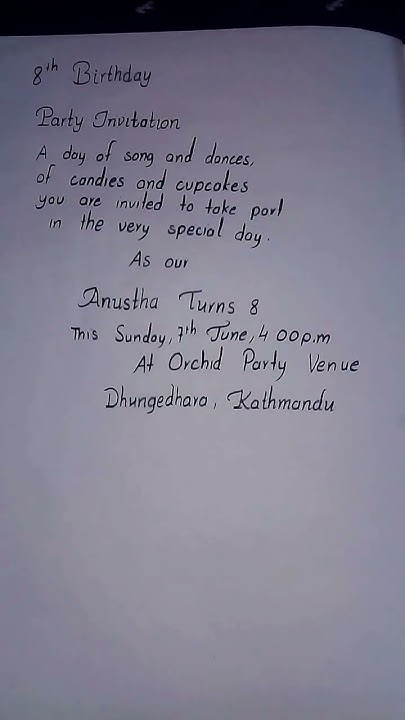 8th Birthday
Party Invitation
A day of song and dances,
of candies and cupcakes
you are invited to take part
in the very special day.
As our
Anustha Turns 8
This Sunday, 7th June, 4 00p.m
At Orchid Party Venue
Dhungedhara, Kathmandu